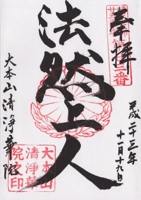 奉拝
平成二十三年
十一月十九日
法然上人
大本山清浄華院
大本山
清浄華
院之印